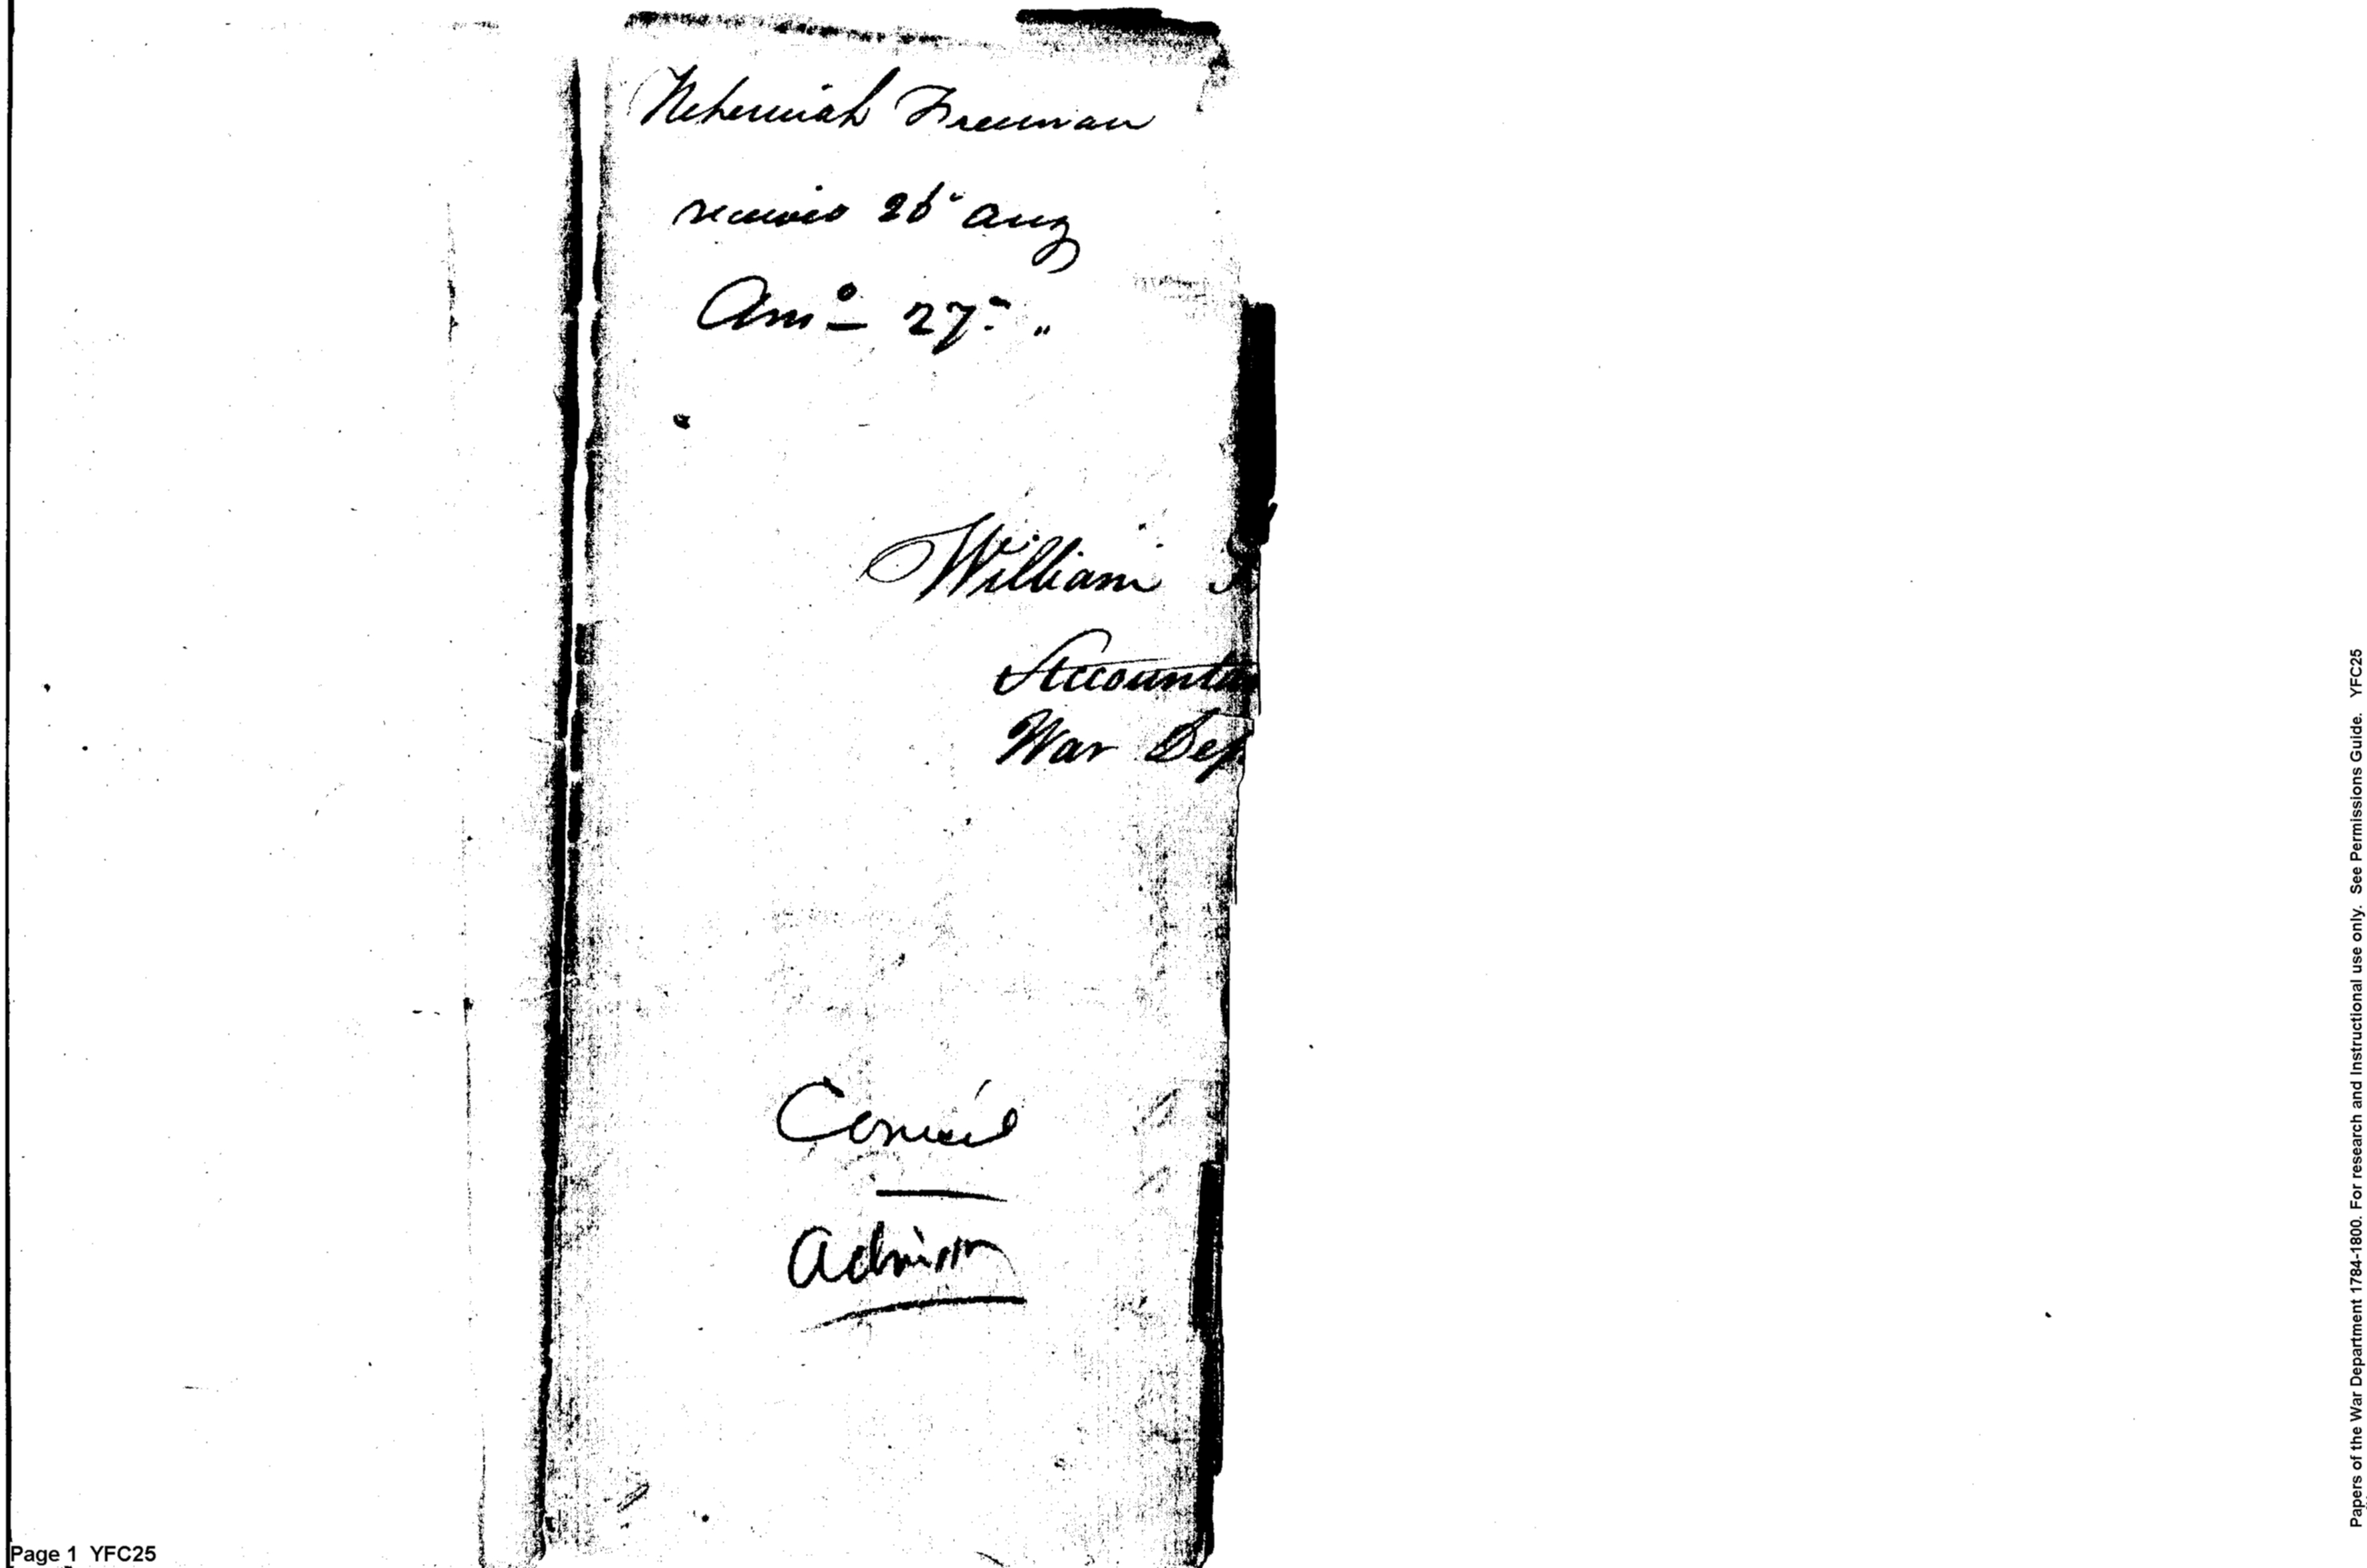 Nehemiah Freeman
received 26 Aug
Am⁰ 27 "
William
Accountan
War Dep
Council
Admin
Page 1 YFC25
Papers of the War Department 1784-1800. For research and Instructional use only. See Permissions Guide. YFC25